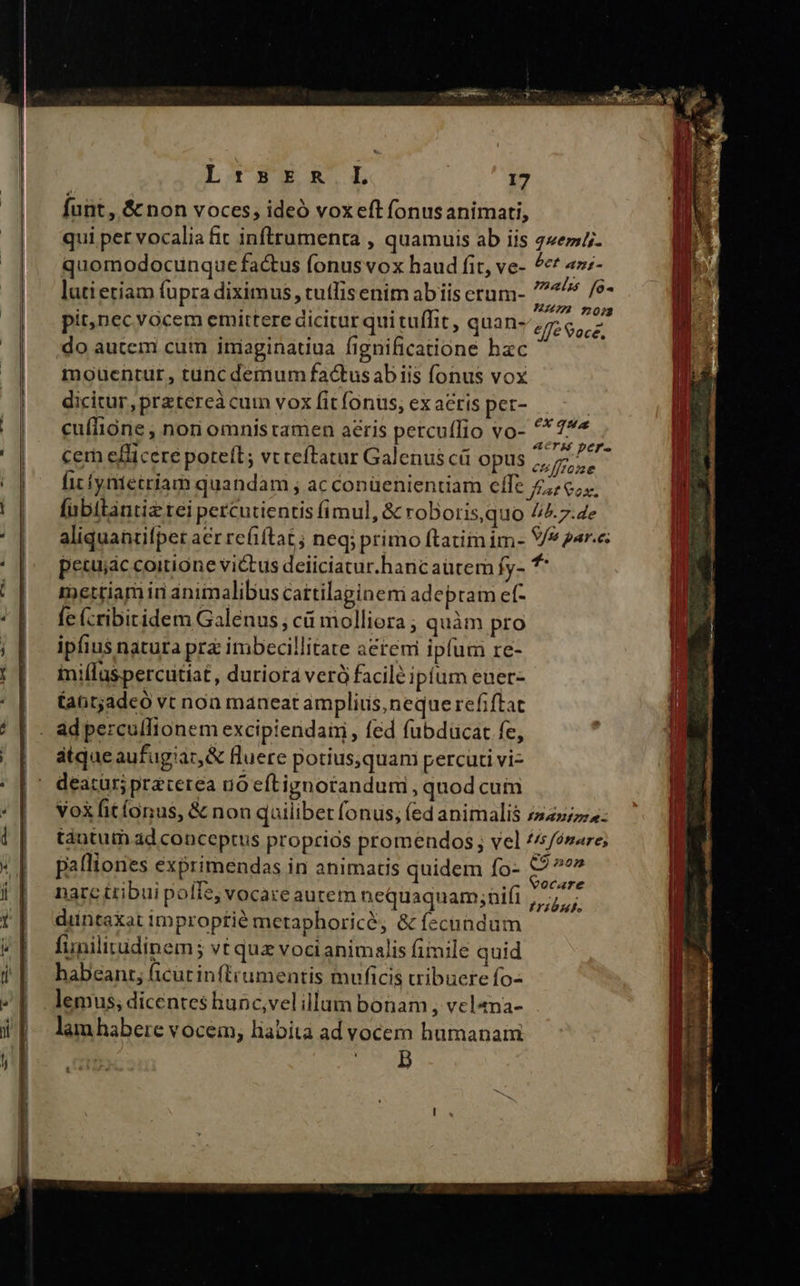 LIBER I. 17
ſunt, & non voces, ideò vox eſt ſonus animati,
qui per vocalia fit inſtrumenta, quamuis ab iis
quomodocunque factus ſonus vox haud fit, ve-
luti etiam ſupra diximus, tuſſis enim ab iis erum-
pit, nec vocem emittere dicitur qui tuſſit, quan-
do autem cum imaginatiua ſignificatione hæc
mouentur, tunc demum factus ab iis ſonus vox
dicitur, prætereà cum vox ſit ſonus, ex aëris per-
cuſſione, non omnis tamen aëris percuſſio vo-
cem efficere poteſt; vt teſtatur Galenus cū opus
ſit ſymetriam quandam, ac conuenientiam eſſe
ſubſtantiæ rei percutientis ſimul, & roboris, quo
aliquantiſper aër reſiſtat; neq; primo ſtatim im-
petu, ac coitione victus deiiciatur. hanc autem ſy-
metriam in animalibus cartilaginem adeptam eſ-
ſe ſcribit idem Galenus, cū molliora, quàm pro
ipſius natura præ imbecillitate aërem ipſum re-
miſſus percutiat, duriora verò facilè ipſum euer-
tant; adeò vt non maneat amplius, neque reſiſtat
ad percuſſionem excipiendam, ſed ſubducat ſe,
atque aufugiat, & fluere potius, quam percuti vi-
deatur; præterea nō eſt ignorandum, quod cum
vox ſit ſonus, & non quilibet ſonus, ſed animalis
tantum ad conceptus proprios promendos; vel
paſſiones exprimendas in animatis quidem ſo-
nare tribui poſſe, vocare autem nequaquam; niſi
duntaxat impropriè metaphoricè, & ſecundum
ſimilitudinem; vt quæ voci animalis ſimile quid
habeant, ſicut inſtrumentis muſicis tribuere ſo-
lemus, dicentes hunc, vel illum bonam, vel ma-
lam habere vocem, habita ad vocem humanam
B
quemli-
bet ani-
malis ſo-
num non
eſſe vocē.
ex qua
aeris per-
cuſſione
fiat vox.
lib. 7. de
vſu par. c.
inanima-
tis ſonare,
& non
vocare
tribui.